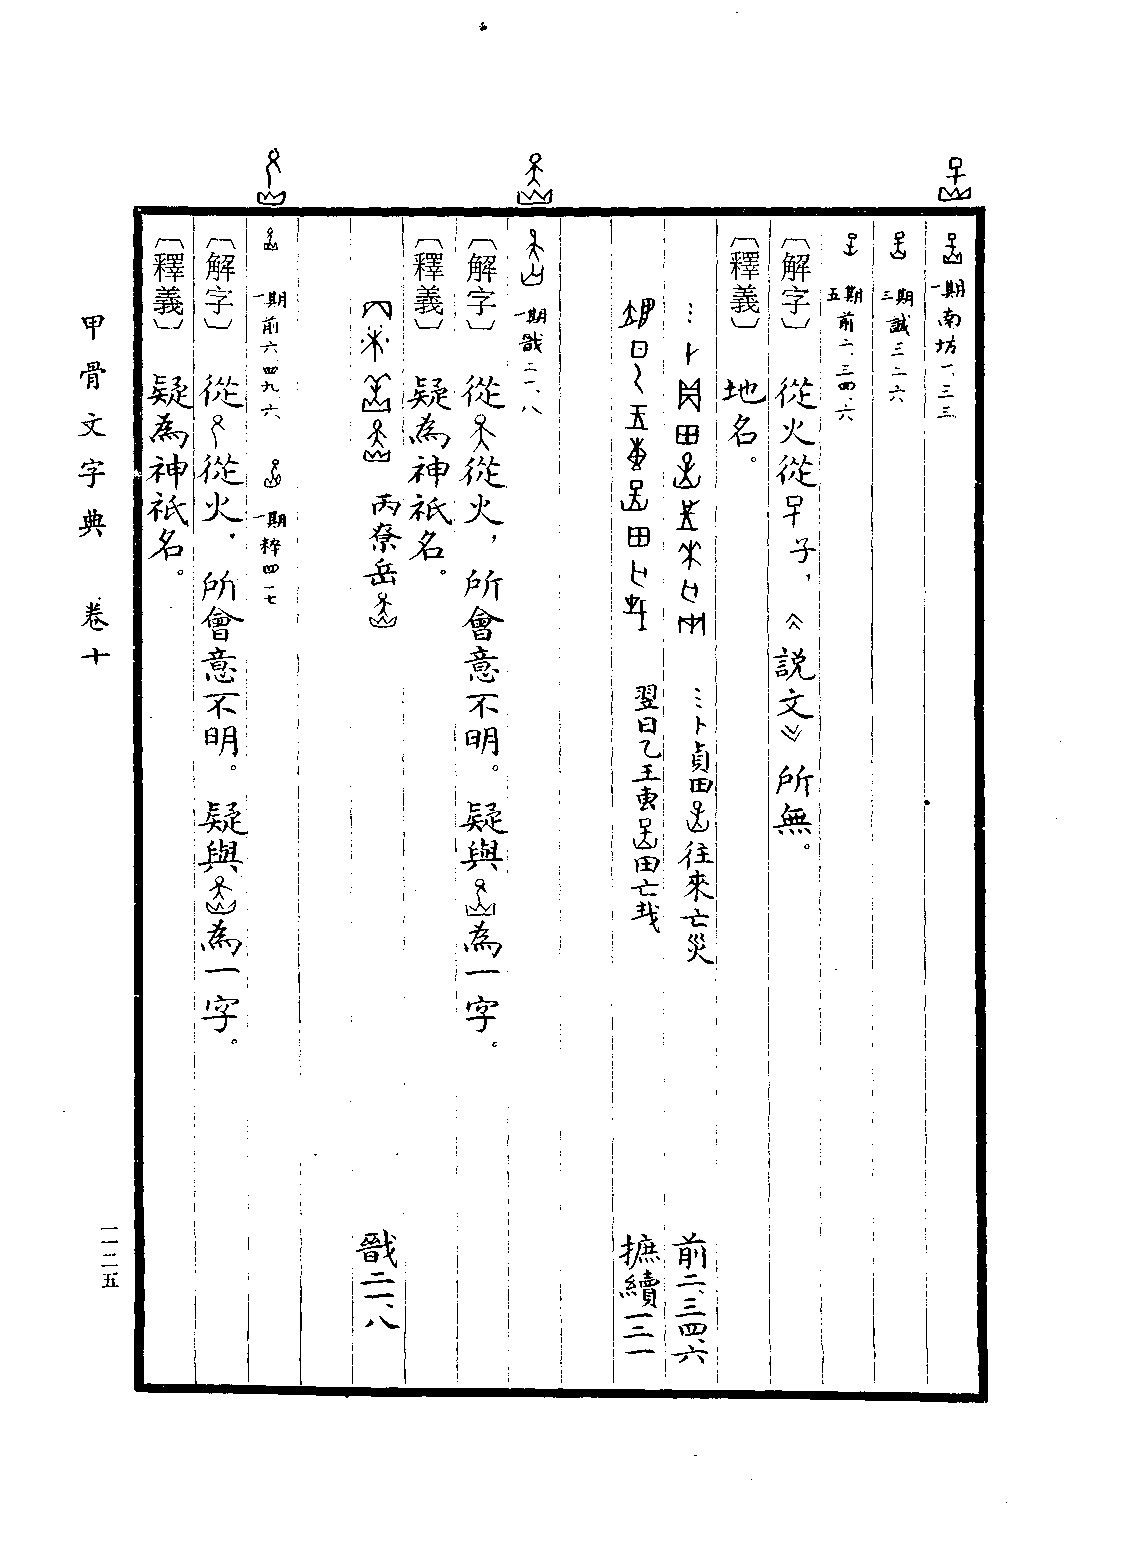 一期南坊一、三三
三期誠三二六
五期前二、三四、六
〔解字〕從火從子,《説文》所無。
〔釋義〕地名。
⋮卜貞田往來亡災 前二、三四、六
翌日乙王叀田亡𢦔 摭續一三一
一期戩二一、八
〔解字〕從從火,所會意不明。疑與為一字。
〔釋義〕疑為神祇名。
丙尞岳 戩二一、八
一期前六、四九、六 一期粹四一七
〔解字〕從從火,所會意不明。疑與為一字。
〔釋義〕疑為神祇名。
甲骨文字典 卷十
一一二五